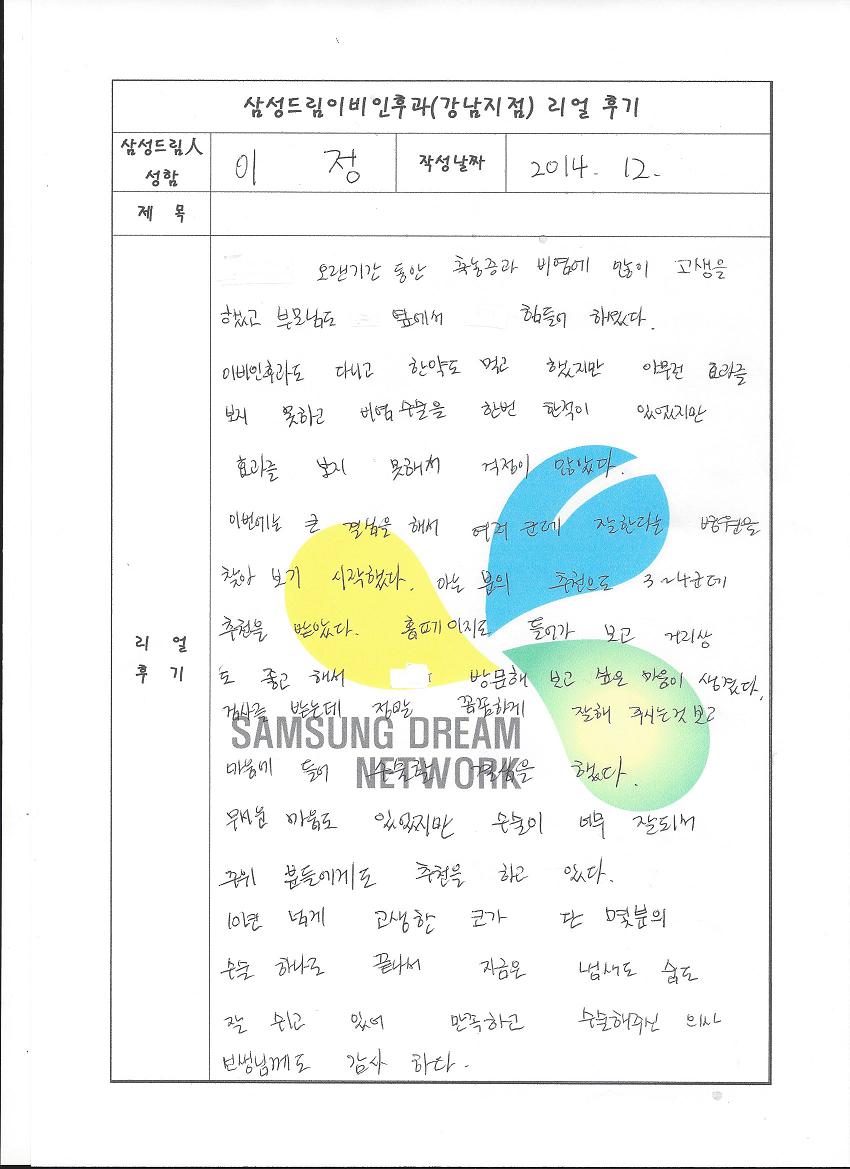 삼성드림이비인후과(강남지점) 리얼 후기
삼성드림人 성함
이 정
작성날짜
2014. 12.
제 목
리 얼 후 기
오랜기간 동안 축농증과 비염에 많이 고생을
했고 부모님도 옆에서 힘들어 하셨다.
이비인후과도 다니고 한약도 먹고 했지만 아무런 효과를
보지 못하고 비염 수술을 한번 한적이 있었지만
효과를 보지 못해서 걱정이 많았다.
이번에는 큰 결심을 해서 여러 군데 잘한다는 병원을
찾아 보기 시작했다. 아는 분의 추천으로 3~4군데
추천을 받았다. 홈페이지도 들어가 보고 거리상
도 좋고 해서 방문해 보고 싶은 마음이 생겼다.
검사를 받는데 정말 꼼꼼하게 잘해 주시는것 보고
SAMSUNG DREAM
마음에 들어 수술할 결심을 했다.
NETWORK
무서운 마음도 있었지만 수술이 너무 잘되서
주위 분들에게도 추천을 하고 있다.
10년 넘게 고생한 코가 단 몇분의
수술 하나로 끝나서 지금은 냄새도 숨도
잘 쉬고 있어 만족하고 수술해주신 의사
선생님께도 감사 하다.